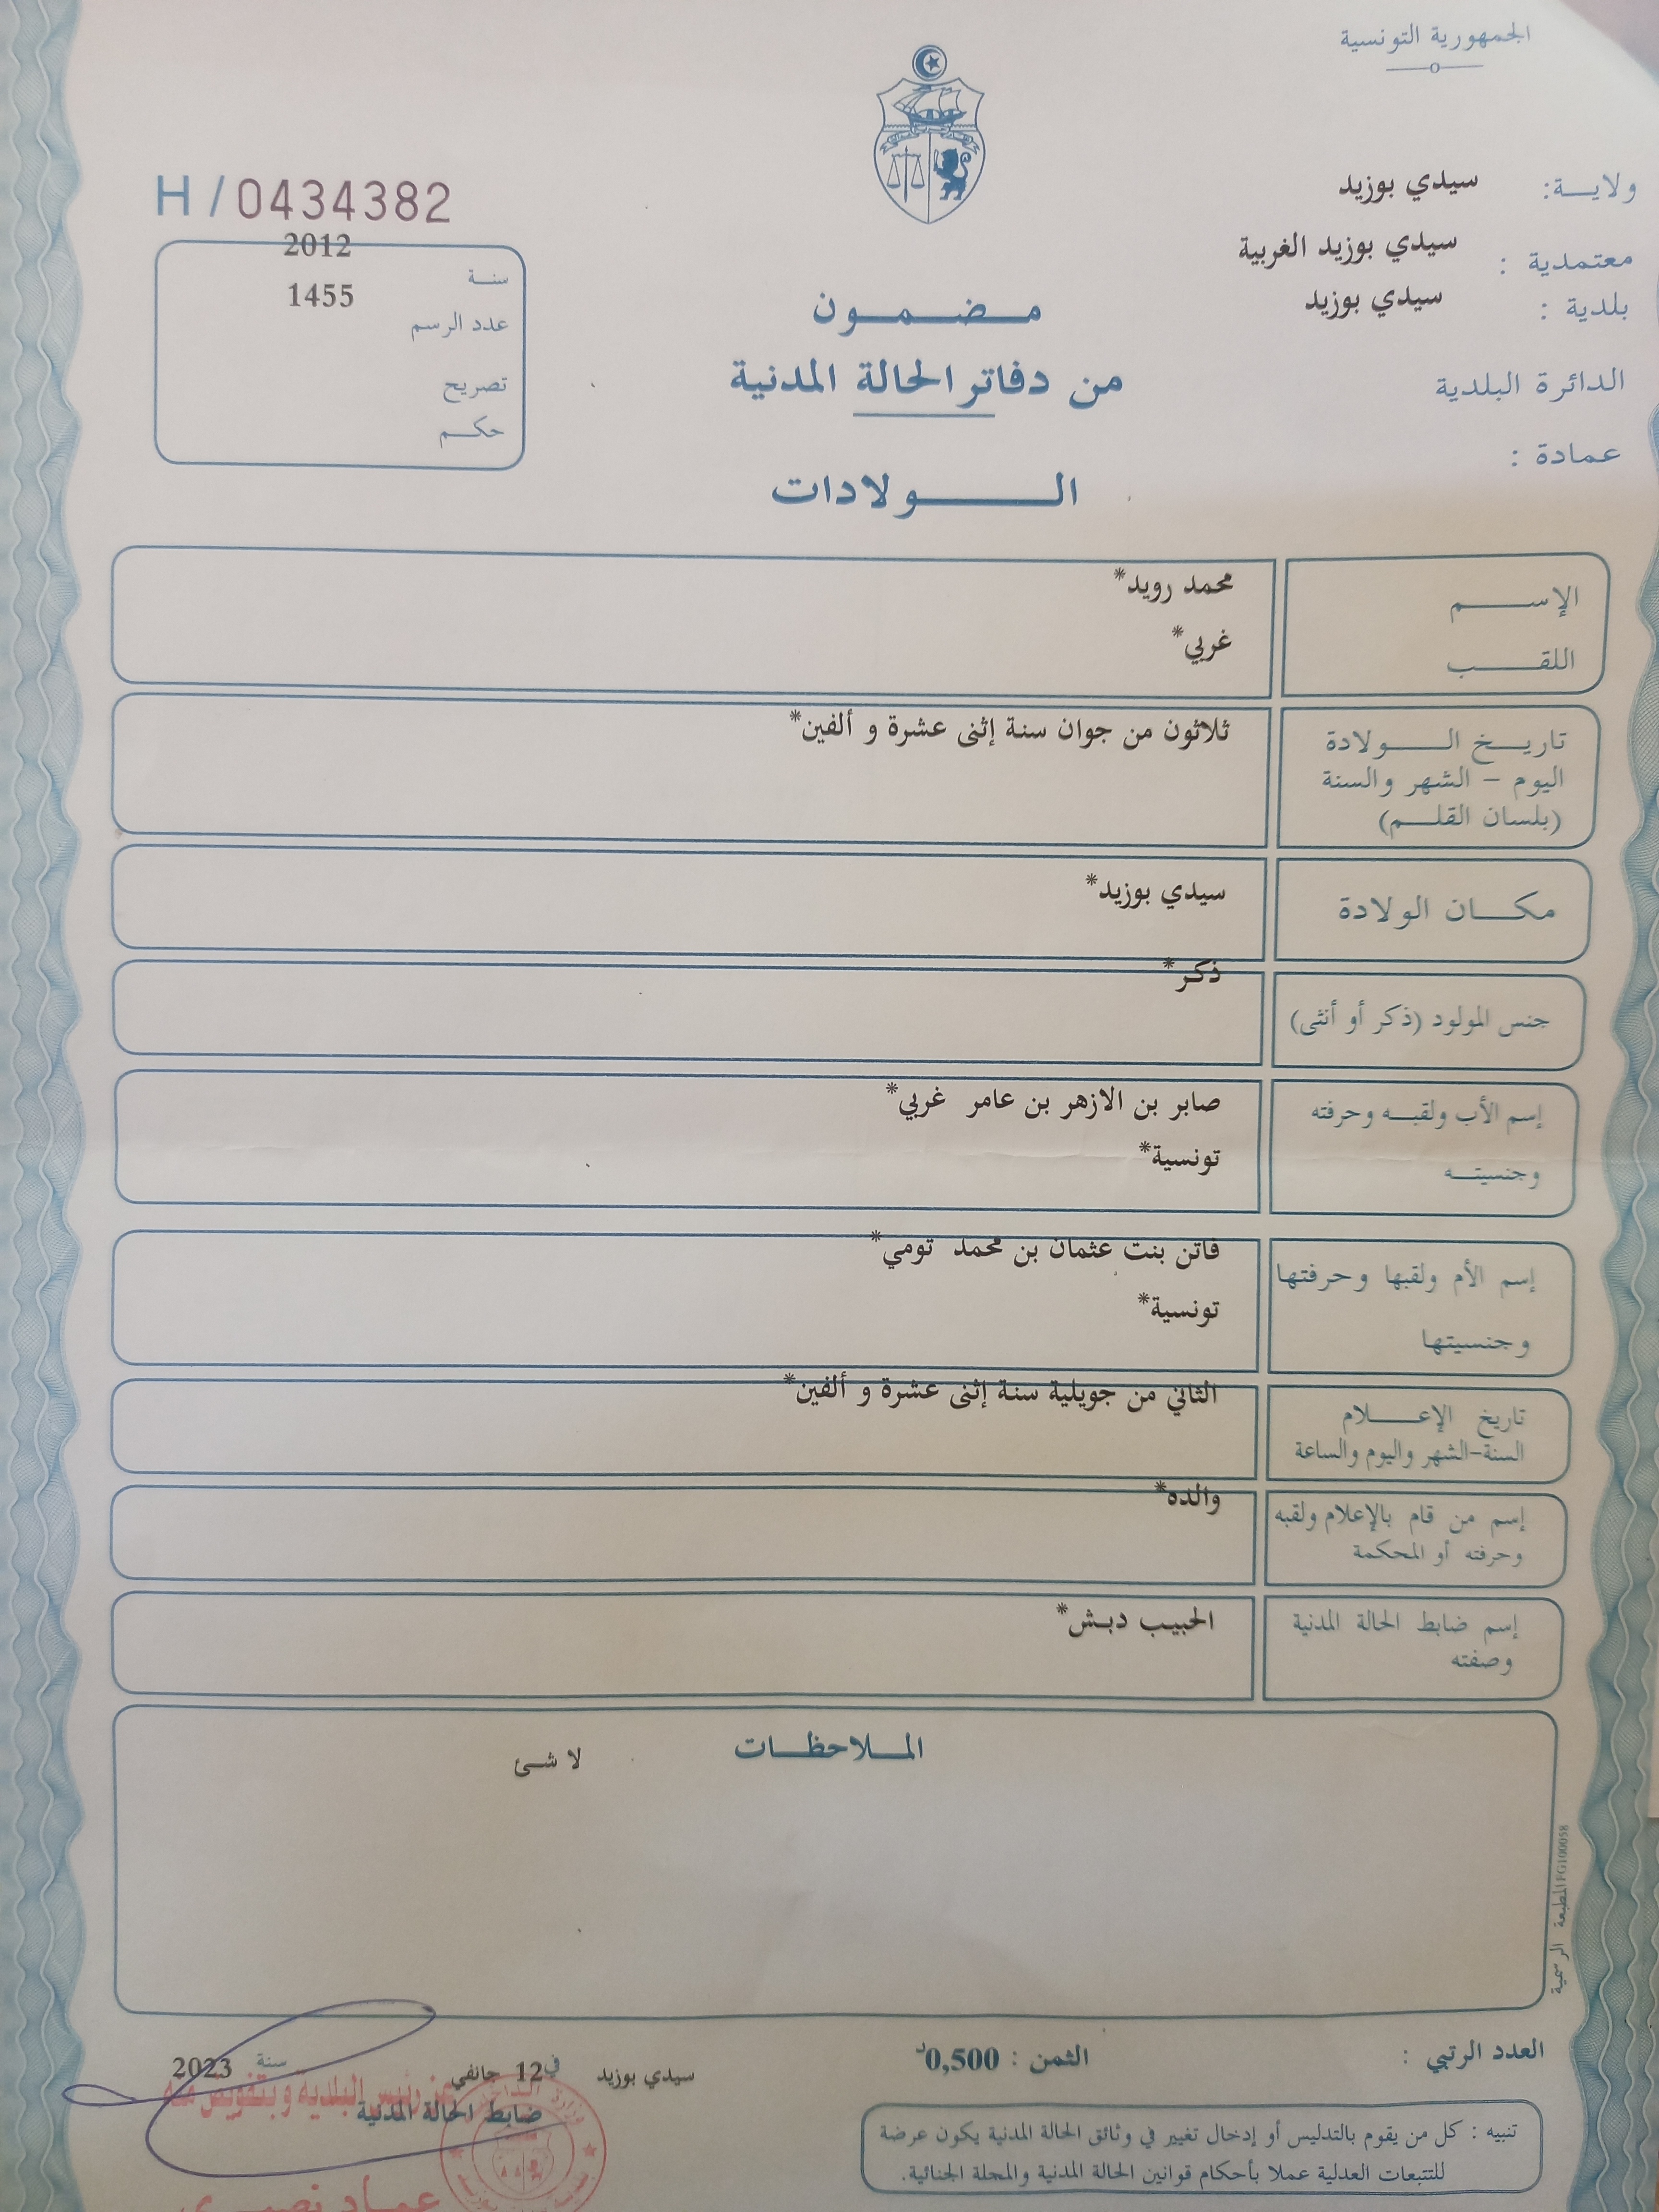 الجمهورية التونسية
ولايــة: سيدي بوزيد
معتمدية : سيدي بوزيد الغربية
بلدية : سيدي بوزيد
الدائرة البلدية
عمادة :
H/0434382
سنـة 2012
عدد الرسم 1455
تصريح
حكـم
مـضـمـون
من دفاتر الحالة المدنية
الـولادات
الإسـم محمد رويد*
اللقـب غربي*
تاريـخ الـولادة ثلاثون من جوان سنة إثنى عشرة و ألفين*
اليوم - الشهر والسنة
(بلسان القلـم)
مكـان الولادة سيدي بوزيد*
جنس المولود (ذكر أو أنثى) ذكر*
إسم الأب ولقبـه وحرفته صابر بن الازهر بن عامر غربي*
وجنسيتـه تونسية*
إسم الأم ولقبها وحرفتها فاتن بنت عثمان بن محمد تومي*
وجنسيتها تونسية*
تاريخ الإعـلام الثاني من جويلية سنة إثنى عشرة و ألفين*
السنة-الشهر واليوم والساعة
إسم من قام بالإعلام ولقبه والده*
وحرفته أو المحكمة
إسم ضابط الحالة المدنية الحبيب دبش*
وصفته
المـلاحظـات
لا شئ
المطبعة الرسمية FG100058
العدد الرتبي :
الثمن : 0,500د
سيدي بوزيد في 12 جانفي سنة 2023
عن رئيس البلدية و بتفويض منه
ضابط الحالة المدنية
عماد نصيري
تنبيه : كل من يقوم بالتدليس أو إدخال تغيير في وثائق الحالة المدنية يكون عرضة
للتتبعات العدلية عملا بأحكام قوانين الحالة المدنية والمجلة الجنائية.